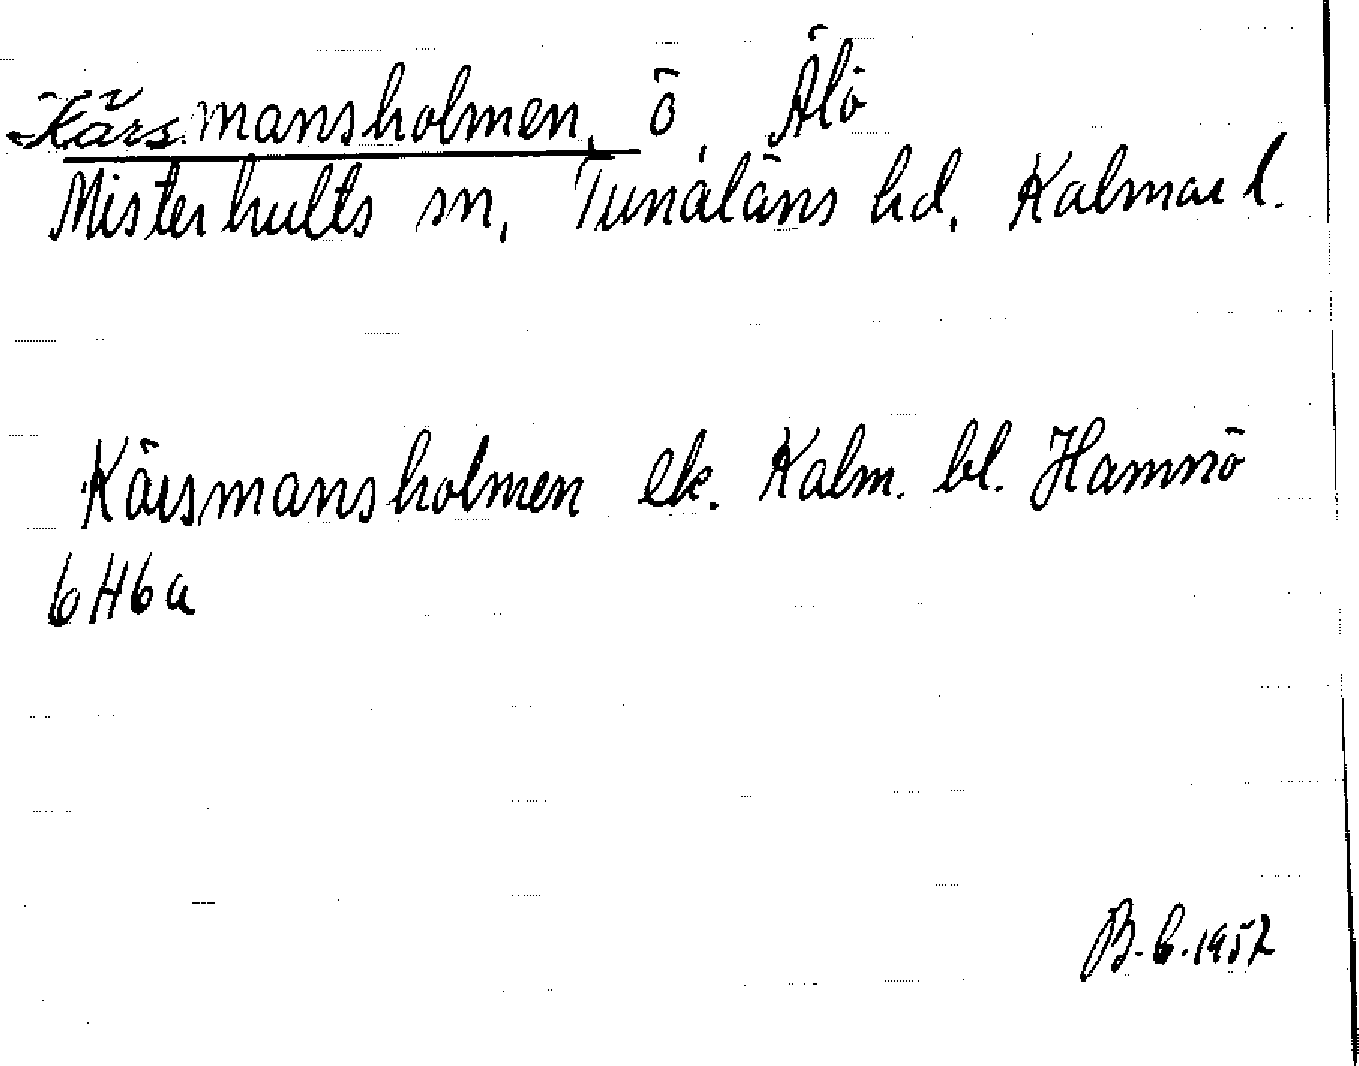 Kärsmansholmen, ö Älö
Misterhults sn, Tunaläns hd. Kalmar l.
Kärsmansholmen ek. Kalm. bl. Hamnö
6H6a
B. C. 1952